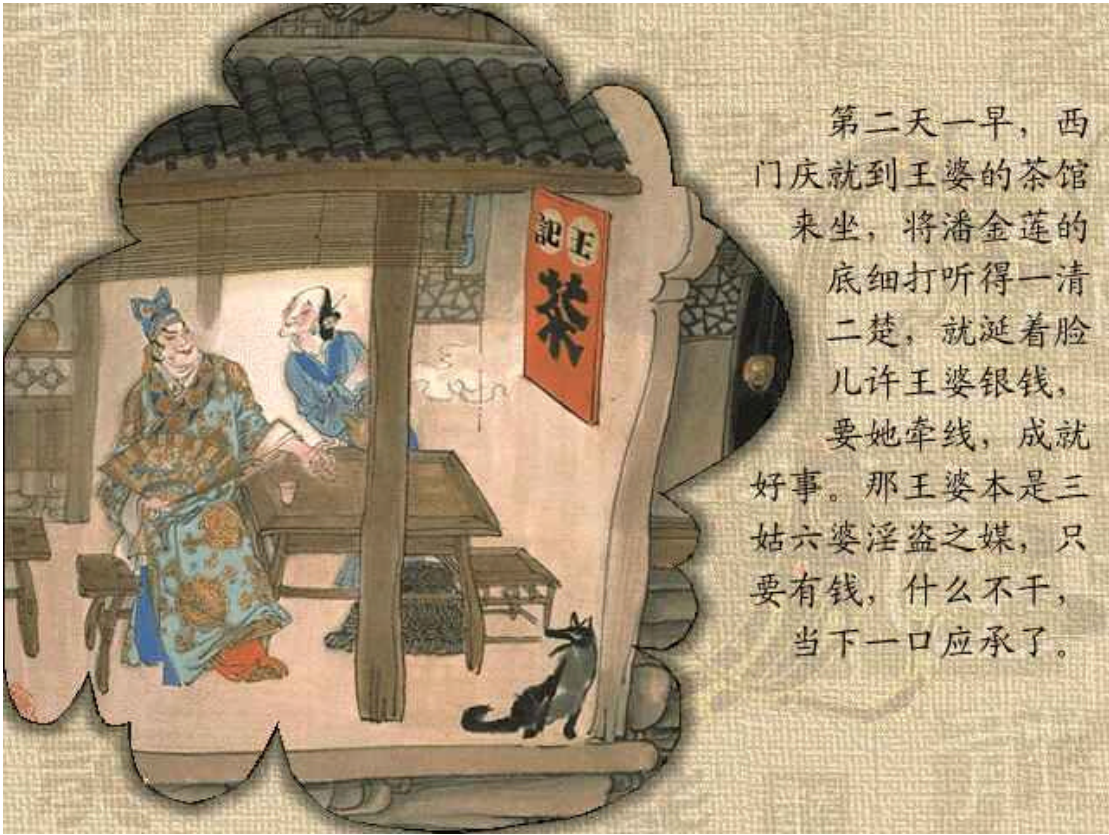 記王
茶
第二天一早，西
门庆就到王婆的茶馆
来坐，将潘金莲的
底细打听得一清
二楚，就涎着脸
儿许王婆银钱，
要她牵线，成就
好事。那王婆本是三
姑六婆淫盗之媒，只
要有钱，什么不干，
当下一口应承了。